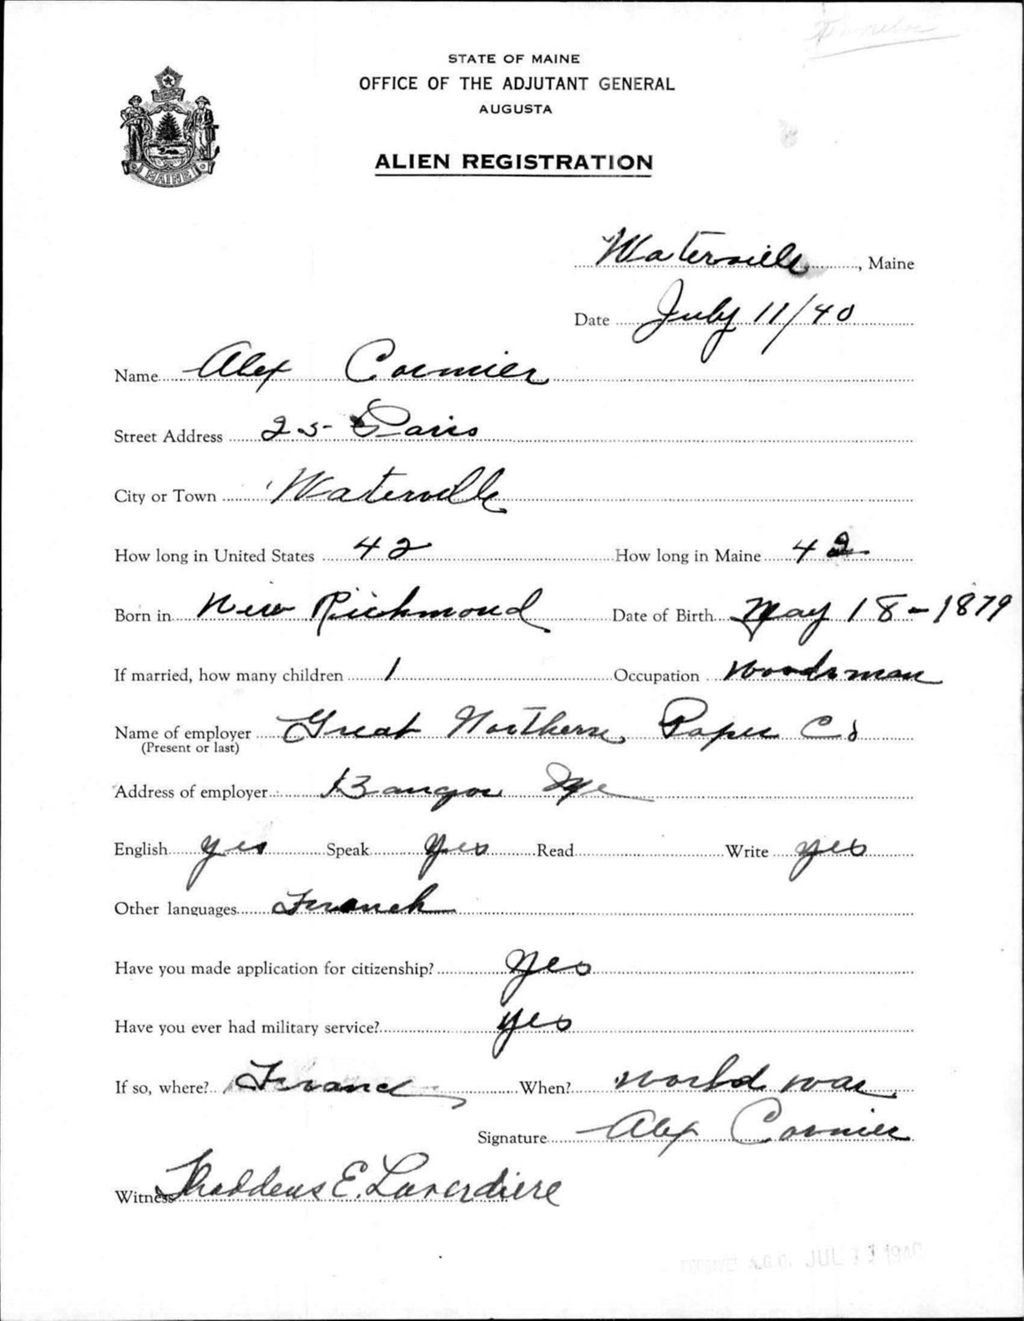 STATE OF MAINE
OFFICE OF THE ADJUTANT GENERAL
AUGUSTA
ALIEN REGISTRATION
MAINE
Waterville, Maine
Date July 11/40
Name Alex Cormier
Street Address 25 Paris
City or Town Waterville
How long in United States 42 How long in Maine 42
Born in New Richmond Date of Birth May 18-1879
If married, how many children 1 Occupation Woodsman
Name of employer Great Northern Paper Co
(Present or last)
Address of employer Bangor Me
English yes Speak yes Read Write yes
Other languages French
Have you made application for citizenship? yes
Have you ever had military service? yes
If so, where? France When? World war
Signature Alex Cormier
Witness Thaddeus E. Laverdiere
A.G.O. JUL 13 1940